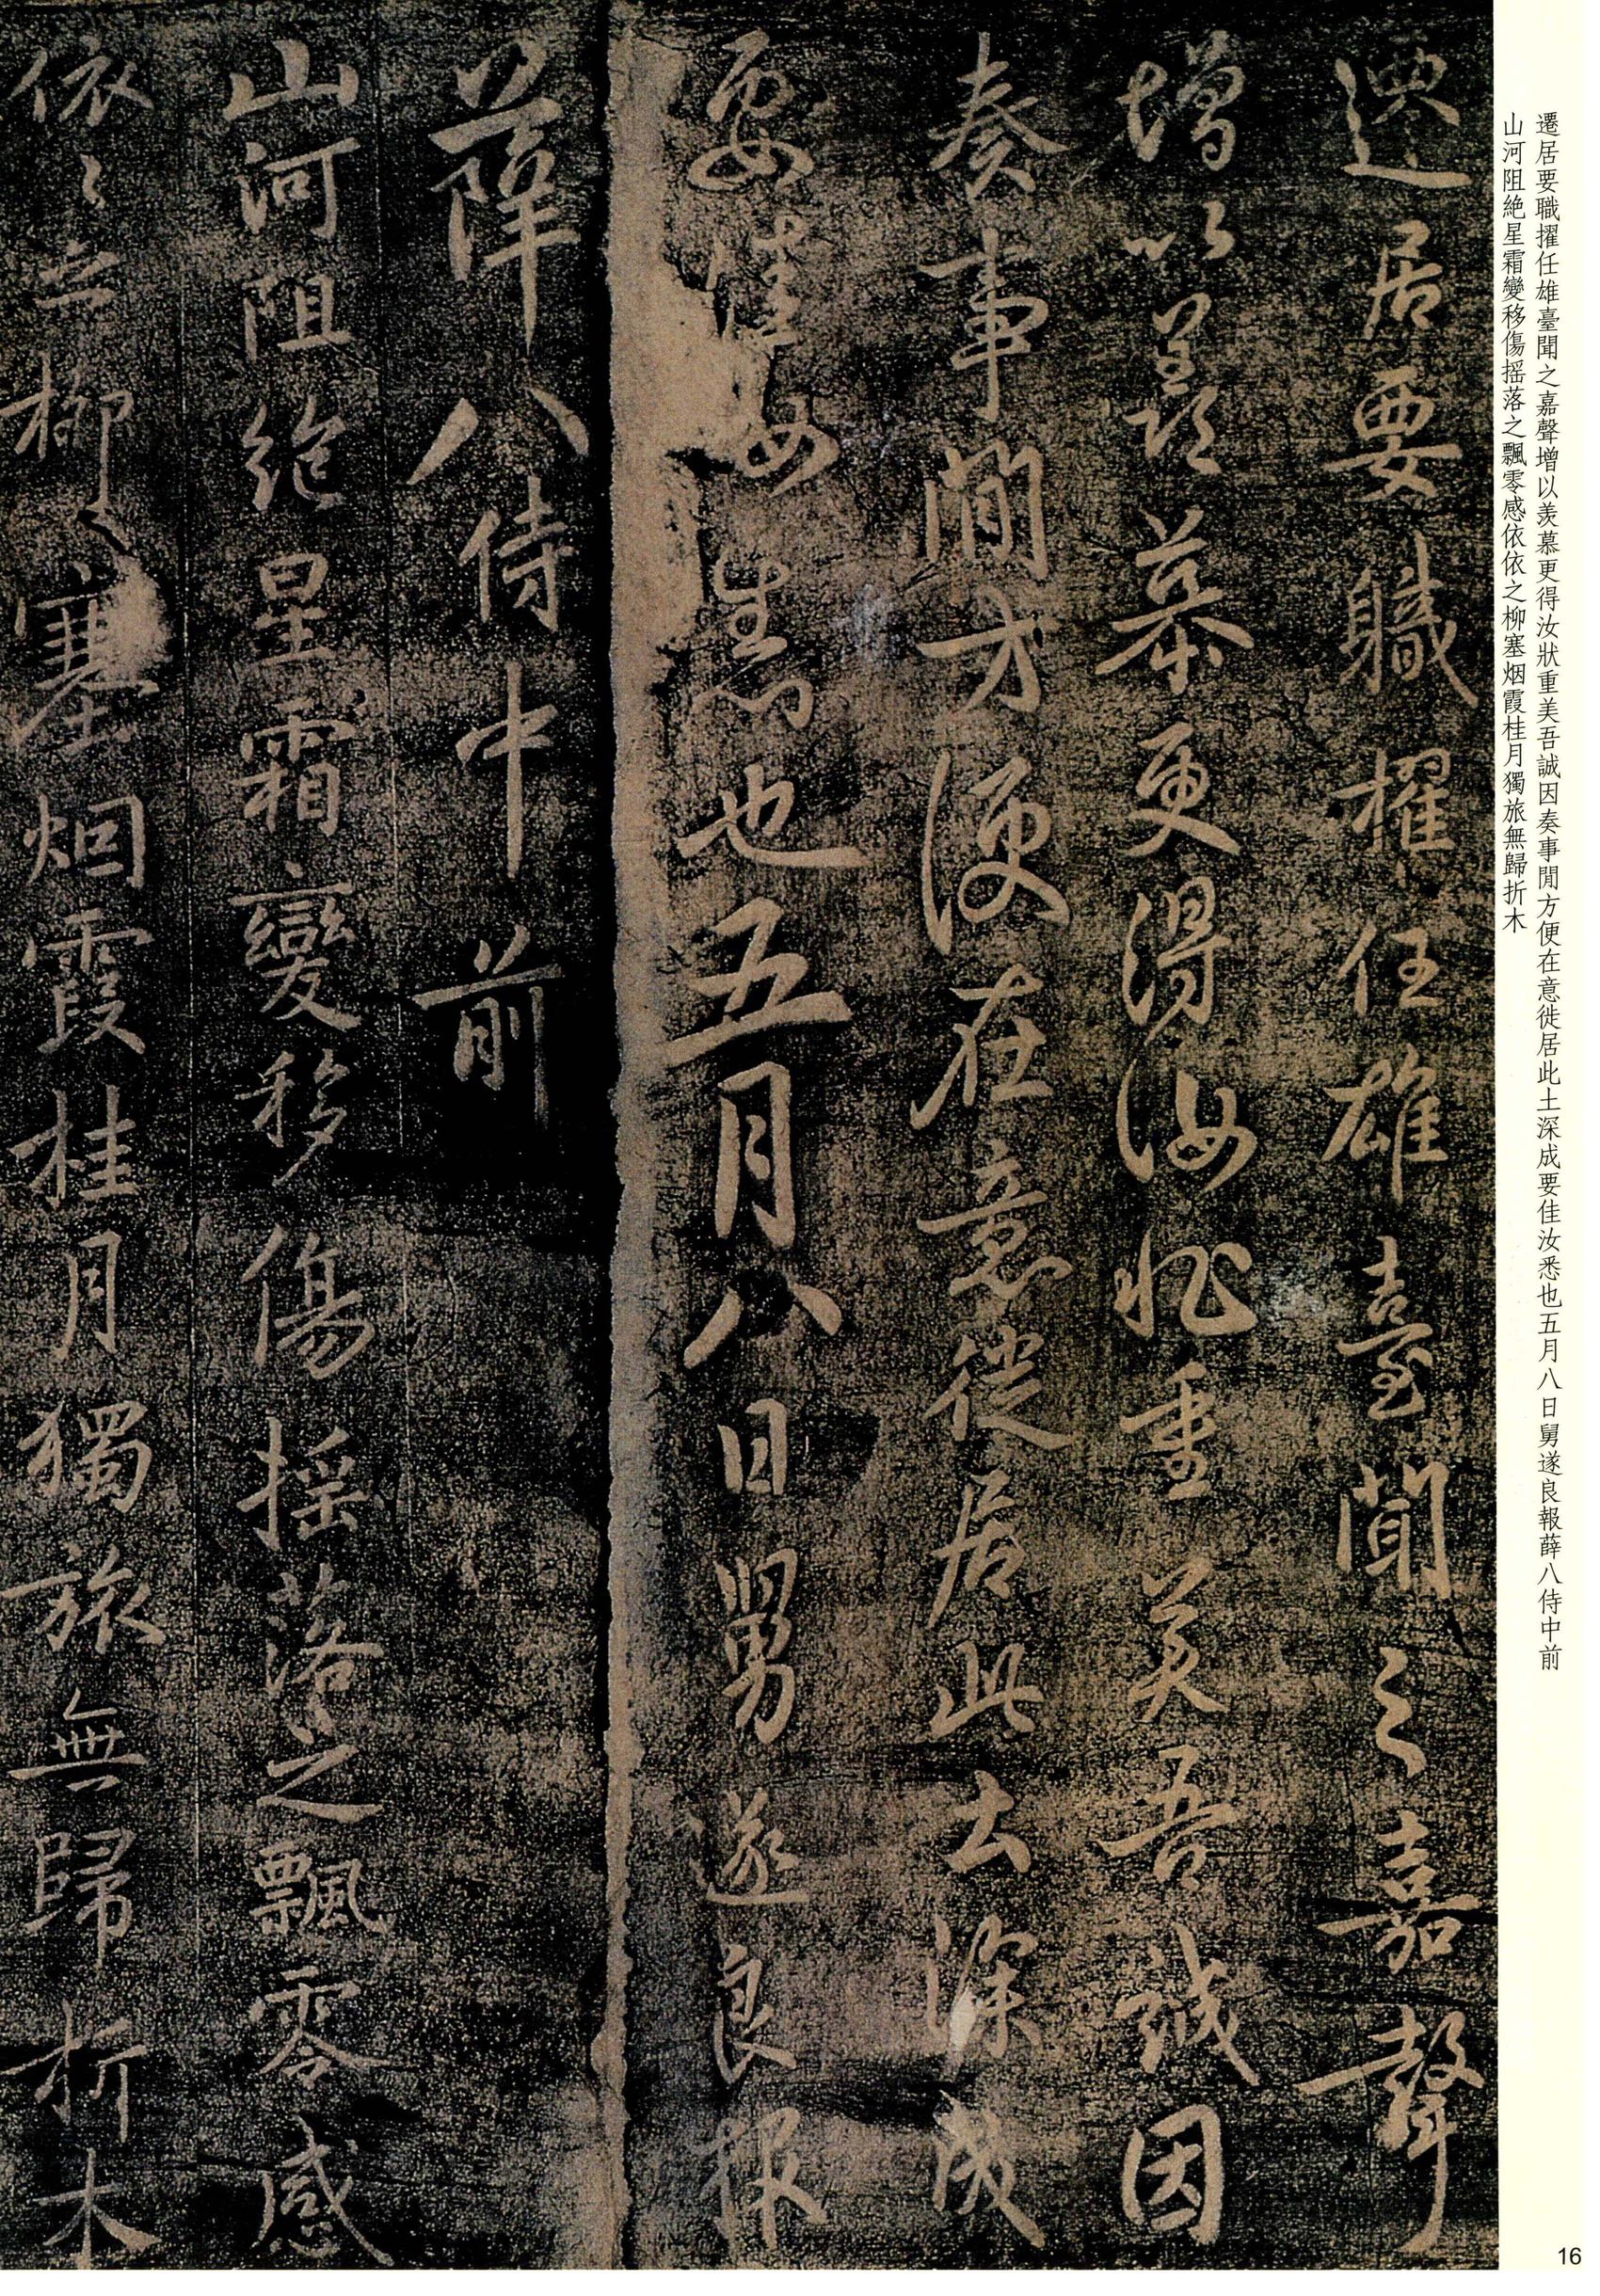 遷居要職擢任雄臺聞之嘉聲增以羨慕更得汝狀重美吾誠因奏事閒方便在意徙居此土深成要佳汝悉也五月八日舅遂良報薛八侍中前
山河阻絶星霜變移傷摇落之飄零感依依之柳塞烟霞桂月獨旅無歸折木
遷居要職擢任雄臺聞之嘉聲
增以羨慕更得汝狀重美吾誠因
奏事閒方便在意徙居此去深成
要佳汝悉也五月八日舅遂良報
薛八侍中前
山河阻絶星霜變移傷摇落之飄零感
依〻之柳塞烟霞桂月獨旅無歸折木
16